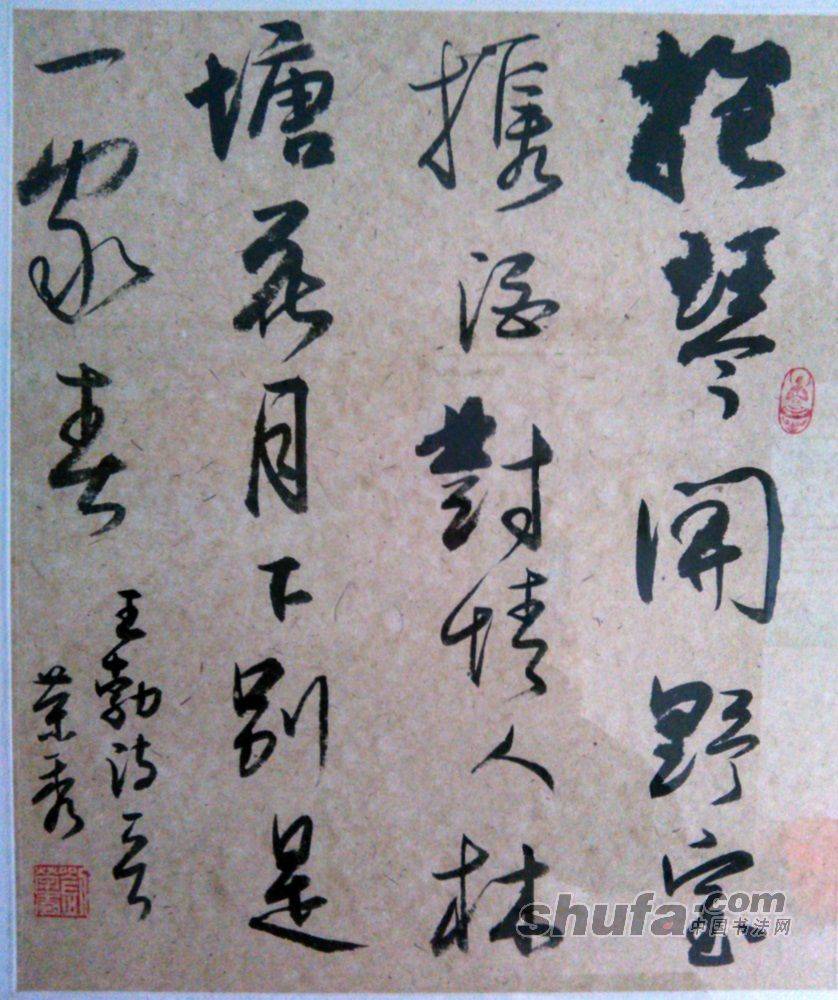 抱琴開野室
携酒對情人林
塘花月下別是
一家春
王勃詩一首
荣秀
shufa.com
中国书法网